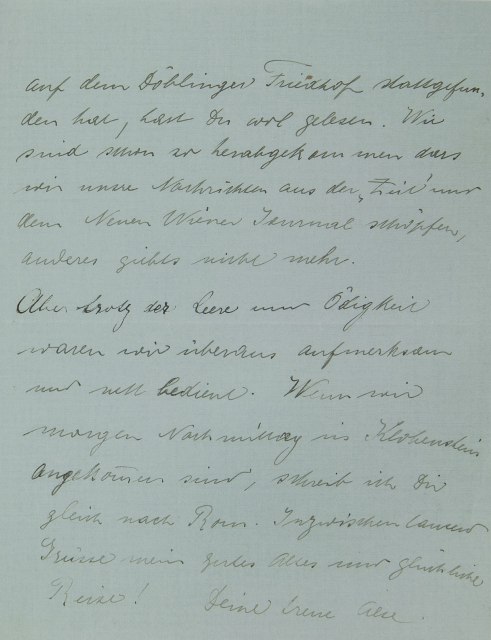 auf dem Döblinger Friedhof stattgefun-
den hat, hast Du wol gelesen. Wir
sind schon so herabgekommen dass
wir unsre Nachrichten aus der „Zeit“ und
dem Neuen Wiener Journal schöpfen,
anderes giebts nicht mehr.
Aber trotz der Leere und Ödigkeit
waren wir überaus aufmerksam
und nett bedient. Wenn wir
morgen Nachmittag in Klobenstein
angekom̄en sind, schreib ich Dir
gleich nach Rom. Inzwischen tausend
Grüsse mein gutes Altes und glückliche
Reise! Deine treue Alte.